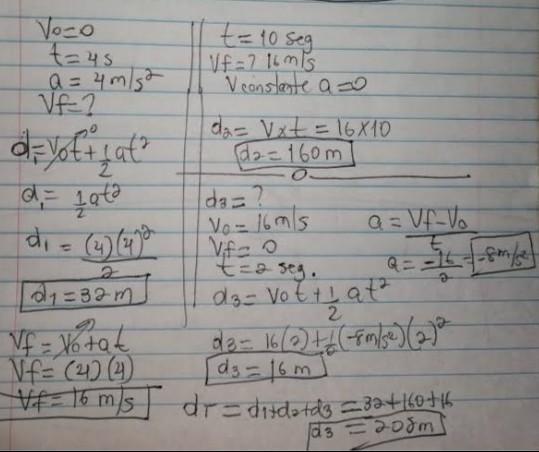 Vo=0
t=4s
a= 4m/s²
Vf=?
d₁=Vot+½at² 0
d₁= ½at²
d₁ = (4)(4)²/2
d₁=32m
Vf= Vo+at 0
Vf= (4)(4)
Vf= 16 m/s
t=10 seg
Vf=? 16m/s
Vconstante a=0
d₂= Vxt = 16x10
d₂=160m
d₃=?
Vo=16m/s
Vf=0
t=2 seg.
a= Vf-Vo/t
a= -16/2 = -8m/s²
d₃= Vot+½at²
d₃= 16(2)+½(-8m/s²)(2)²
d₃=16m
dT=d₁+d₂+d₃=32+160+16
d₃=208m